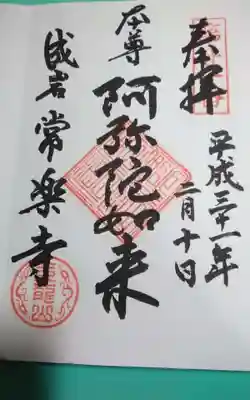 奉拝
平成三十一年
二月十日
本尊
阿弥陀如来
成岩
常楽寺